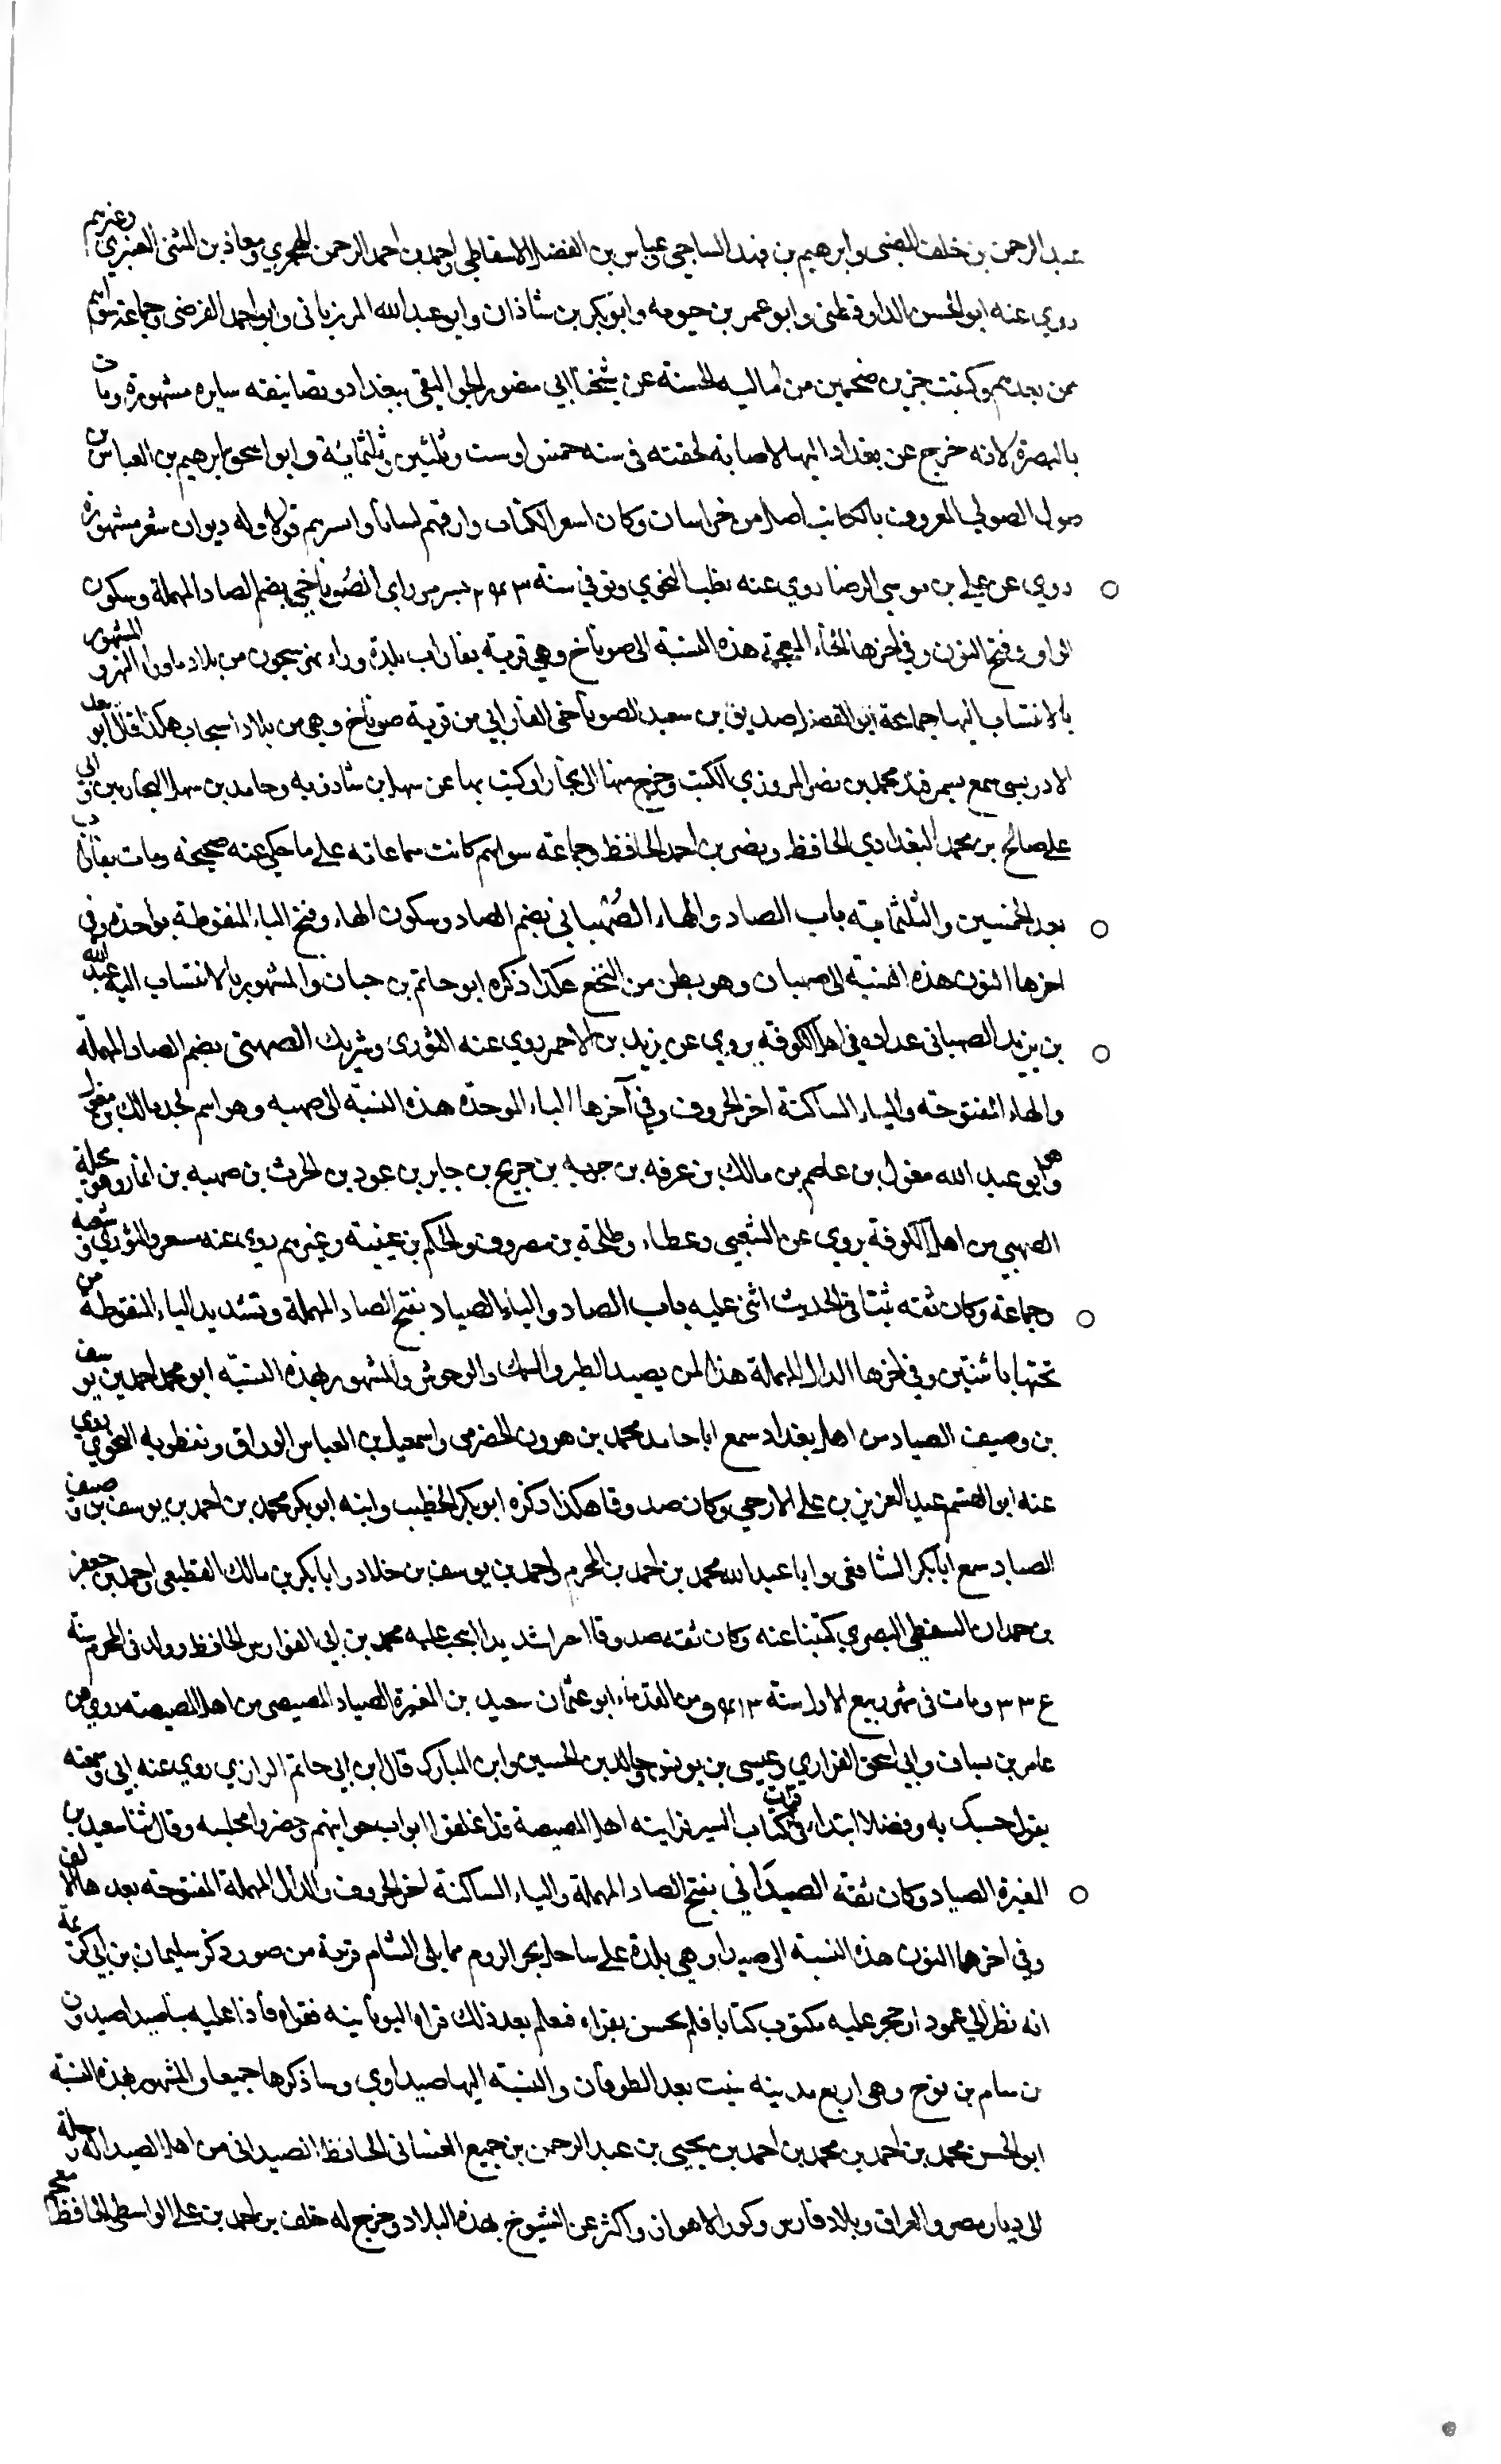 عبد الرحمن بن خلف الضبي وابرهيم بن فهد الساجي وعباس بن الفضل الاسفاطي واحمد بن احمد الرحمن الهجري ومعاذ بن المثنى العنبري وغيرهم
روي عنه ابو الحسن الدارقطني وابو عمر بن حيويه وابو بكر بن شاذان وابو عبد الله المرزباني وابو احمد الفرضي وجماعة سواهم
ممن بعدهم وكتبت جزين ضخمين من اماليه الحسنة عن شيخنا ابي منصور الجواليقي ببغداد وتصانيفه سايره مشهورة ومات
بالبصرة لانه خرج عن بغداد اليها لاضاقة لحقته في سنه خمس او ست وثلثين وثلثمائة وابو اسحق ابرهيم بن العباس بن
صول الصولي المعروف بالكاتب اصله من خراسان وكان اشعر الكتاب وارقهم لسانا واسرهم قولا وله ديوان شعر مشهورة
روي عن علي بن موسى الرضا روي عنه ثعلب النحوي وتوفي سنة ٢٤٣ بسر من راى الصُوناخي بضم الصاد المهملة وسكون
الواو وفتح النون وفي اخرها الخاء المعجمة هذه النسبة الى صوناخ وهي قرية بفاراب بلدة وراء نهر سيحون من بلاد ماورا النهر والمشهور
بالانتساب اليها جماعة ابو الفضل صديق بن سعيد الصوناخي الفارابي من قرية صوناخ وهي من بلاد اسبيجاب هكذا قال ابو سعد
الادريسي سمع بسمرقند محمد بن نصر المروزي الكتب وخرج منها الى بخارا وكتب بها عن سهل بن شاذويه وحامد بن سهل البخاريين وابي
علي صالح بن محمد البغدادي الحافظ ونصر بن احمد الحافظ وجماعة سواهم كانت سماعاته على ما حكي عنه صحيحة ومات بفاراب
بعد الخمسين والثلثماية باب الصاد والهاء الصُهباني بضم الصاد وسكون الهاء وفتح الباء المنقوطة بواحدة وفي
اخرها النون هذه النسبة الى صهبان وهو بطن من النخع هكذا ذكره ابو حاتم بن حبان والمشهور بالانتساب اليه عبد الله
بن يزيد الصهباني عداده في اهل الكوفة يروي عن يزيد بن الاحمر روي عنه الثوري وشريك الصهبي بضم الصاد المهملة
والهاء المفتوحة والياء الساكنة اخر الحروف وفي آخرها الباء الموحدة هذه النسبة الى صهيبه وهو اسم لجد مالك بن مغول
وهو ابو عبد الله مغول بن عاصم بن مالك بن عرفه بن جريج بن جابر بن عود بن الحرث بن صهيبه بن انمار وهو بجيلة
الصهبي من اهل الكوفة يروي عن الشعبي وعطاء وطلحة بن مصروف والحكم بن عيينة وغيرهم روي عنه مسعر والثوري وشعبة
وجماعة وكان ثقة ثبتا في الحديث اثني عليه باب الصاد والياء الصياد بفتح الصاد المهملة وتشديد الياء المنقوطة من
تحتها باثنتين وفي اخرها الدال المهملة هذا لمن يصيد الطير والسمك والوحوش والمشهور بهذه النسبة ابو محمد احمد بن يوسف
بن وصيف الصياد من اهل بغداد سمع ابا حامد محمد بن هرون الحضرمي واسمعيل بن العباس الوراق ونفطويه النحوي روي
عنه ابو القسم عبد العزيز بن علي الازجي وكان صدوقا هكذا ذكره ابو بكر الخطيب وابنه ابو بكر محمد بن احمد بن يوسف بن وصيف
الصياد سمع ابا بكر الشافعي وابا عبد الله محمد بن احمد بن المحرم واحمد بن يوسف بن خلاد وابا بكر بن مالك القطيعي واحمد بن جعفر
بن حمدان السقطي البصري كتبنا عنه وكان ثقه صدوقا محمد بن ابي الفوارس الحافظ وولد في المحرم سنة
٣٣٤ ومات في شهر ربيع الاول سنة ٤١٣ ومن القدماء ابو عثمان سعيد بن المغيرة الصياد المصيصي من اهل المصيصة روي عن
عامر بن يساف وابي اسحق الفزاري وعيسى بن يونس ومخلد بن الحسين وابن المبارك قال ابن ابي حاتم الرازي روي عنه ابي وسمعته
يقول حسبك به وفضلا ابتداء قرات في كتاب السير فرايته اهل المصيصة قد اغلقوا ابواب حوانيتهم وحضروا مجلسه وقال ثنا سعيد بن
المغيرة الصياد وكان ثقة الصيدَاني بفتح الصاد المهملة والياء الساكنة اخر الحروف والدال المهملة المفتوحة بعدها الالف
وفي اخرها النون هذه النسبة الى صيدا وهي بلدة على ساحل بحر الروم مما يلي الشام قريبة من صور ذكر سليمان بن ابي كريمة
انه نظر الى عمود او حجر عليه مكتوب كتابا فلم يحسن يقراه فعلم بعد ذلك قراه اليونانية فقراه فاذا عليه صيدون
بن سام بن نوح وهي اربع مدينه بنيت بعد الطوفان والنسبة اليها صيداوي وساذكرها جميعا والمشهور بهذه النسبة
ابو الحسن محمد بن احمد بن محمد بن احمد بن يحيى بن عبد الرحمن بن جميع الغساني الحافظ الصيداني من اهل الصيدا له رحلة
الى ديار مصر والعراق وبلاد فارس وكور الاهواز واكثر عن الشيوخ بهذه البلاد وخرج له خلف بن احمد بن علي الواسطي الحافظ معجم